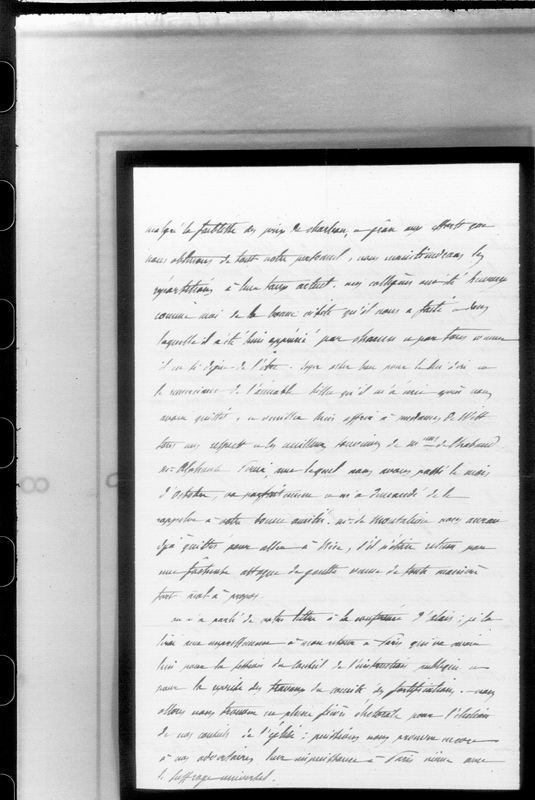 malgré la faiblesse des prix de charbon, & grâce aux efforts que
nous obtenons de tout notre personnel, nous maintiendrons les
répartitions à leur taux actuel. mes collègues ont été heureux
comme moi de la bonne visite qu'il nous a faite & dans
laquelle il a été bien apprécié par chacun & par tous comme
il est si digne de l'être. soyez assez bon pour le lui dire &
le remercier de l'aimable lettre qu'il m'a écrite après nous
avoir quittés. & veuillez bien offrir à mesdames de Witt
tous mes respects & les meilleurs souvenirs de Mme de Chabaud.
Mr. avec lequel nous avons passé le mois
d'octobre, m'a demandé de le
rappeler à votre bonne amitié. Mr. de Montalivet nous aurait
déjà quittés pour aller à Nice, s'il n'était retenu par
une attaque de goutte venue de toute manière
fort mal à propos.
on m'a parlé de votre lettre à la conférence d'alais : je la
lirai avec empressement à mon retour à Paris qui sera
pour la session du Conseil de l'instruction publique &
pour la reprise des travaux du comité des fortifications. nous
allons nous trouver en pleine fièvre électorale pour l'élection
de nos conseils de l'église : puissions nous prouver encore
à nos adversaires leur impuissance à Paris même avec
le suffrage universel.